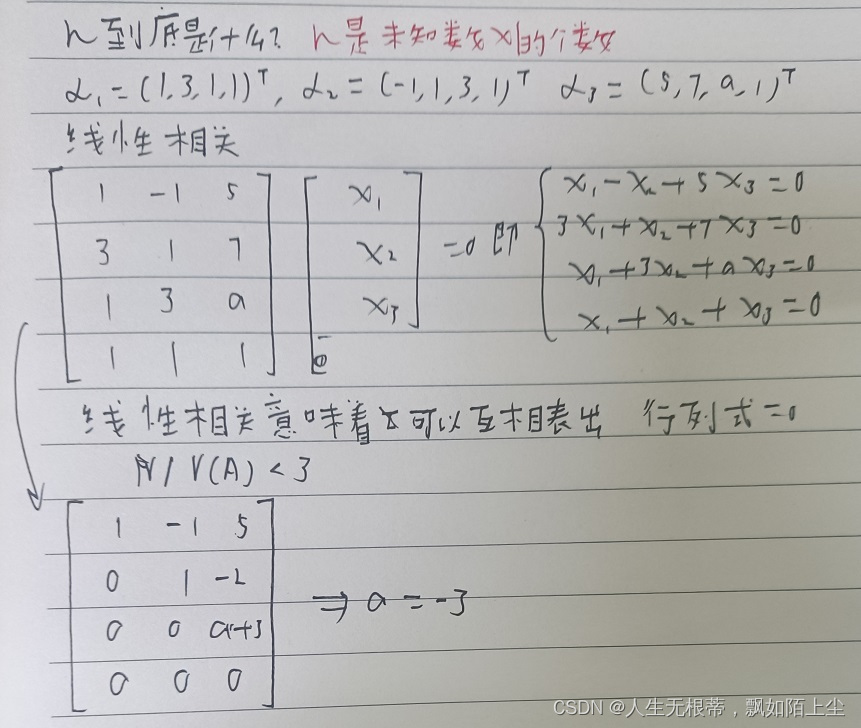 n到底是什么? n是未知数x的个数
α₁=(1,3,1,1)ᵀ, α₂=(-1,1,3,1)ᵀ α₃=(5,7,a,1)ᵀ
线性相关
[1 -1 5; 3 1 7; 1 3 a; 1 1 1] [x₁; x₂; x₃] =0 即 { x₁-x₂+5x₃=0
3x₁+x₂+7x₃=0
x₁+3x₂+ax₃=0
x₁+x₂+x₃=0
线性相关意味着 可以互相表出 行列式=0
r(A)<3
1 -1 5
0 1 -2
0 0 a+3
0 0 0
⇒ a=-3
CSDN @人生无根蒂，飘如陌上尘